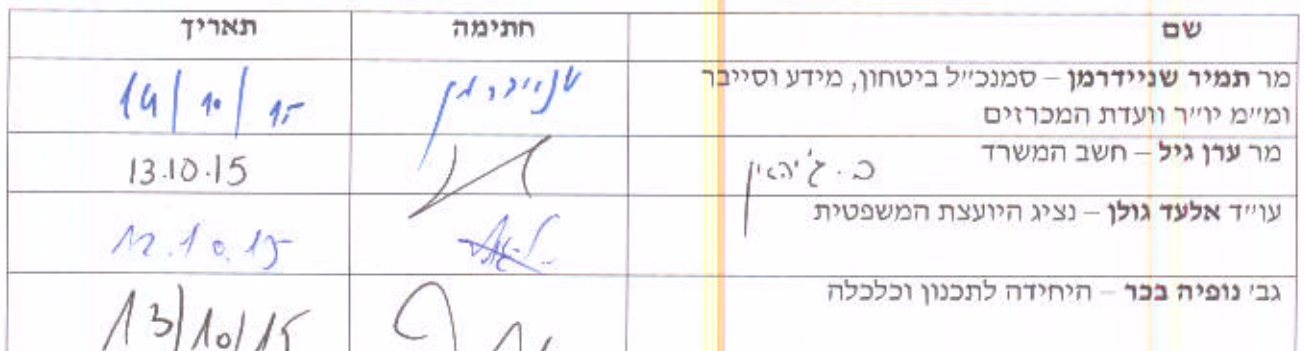 שם חתימה תאריך
מר תמיר שניידרמן – סמנכ״ל ביטחון, מידע וסייבר שניידרמן 14/10/15
ומ״מ יו״ר וועדת המכרזים
מר ערן גיל – חשב המשרד 13.10.15
עו״ד אלעד גולן – נציג היועצת המשפטית 12.10.15
גב׳ נופיה בכר – היחידה לתכנון וכלכלה 13/10/15